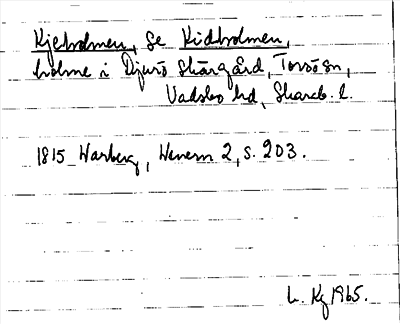 Kjeholmen, se Kidholmen,
holme i Djurö skärgård, Torsö sn,
Vadsbo hd, Skarab. l.
1815 Warberg, Wenern 2, s. 203.
L. Kg 1965.